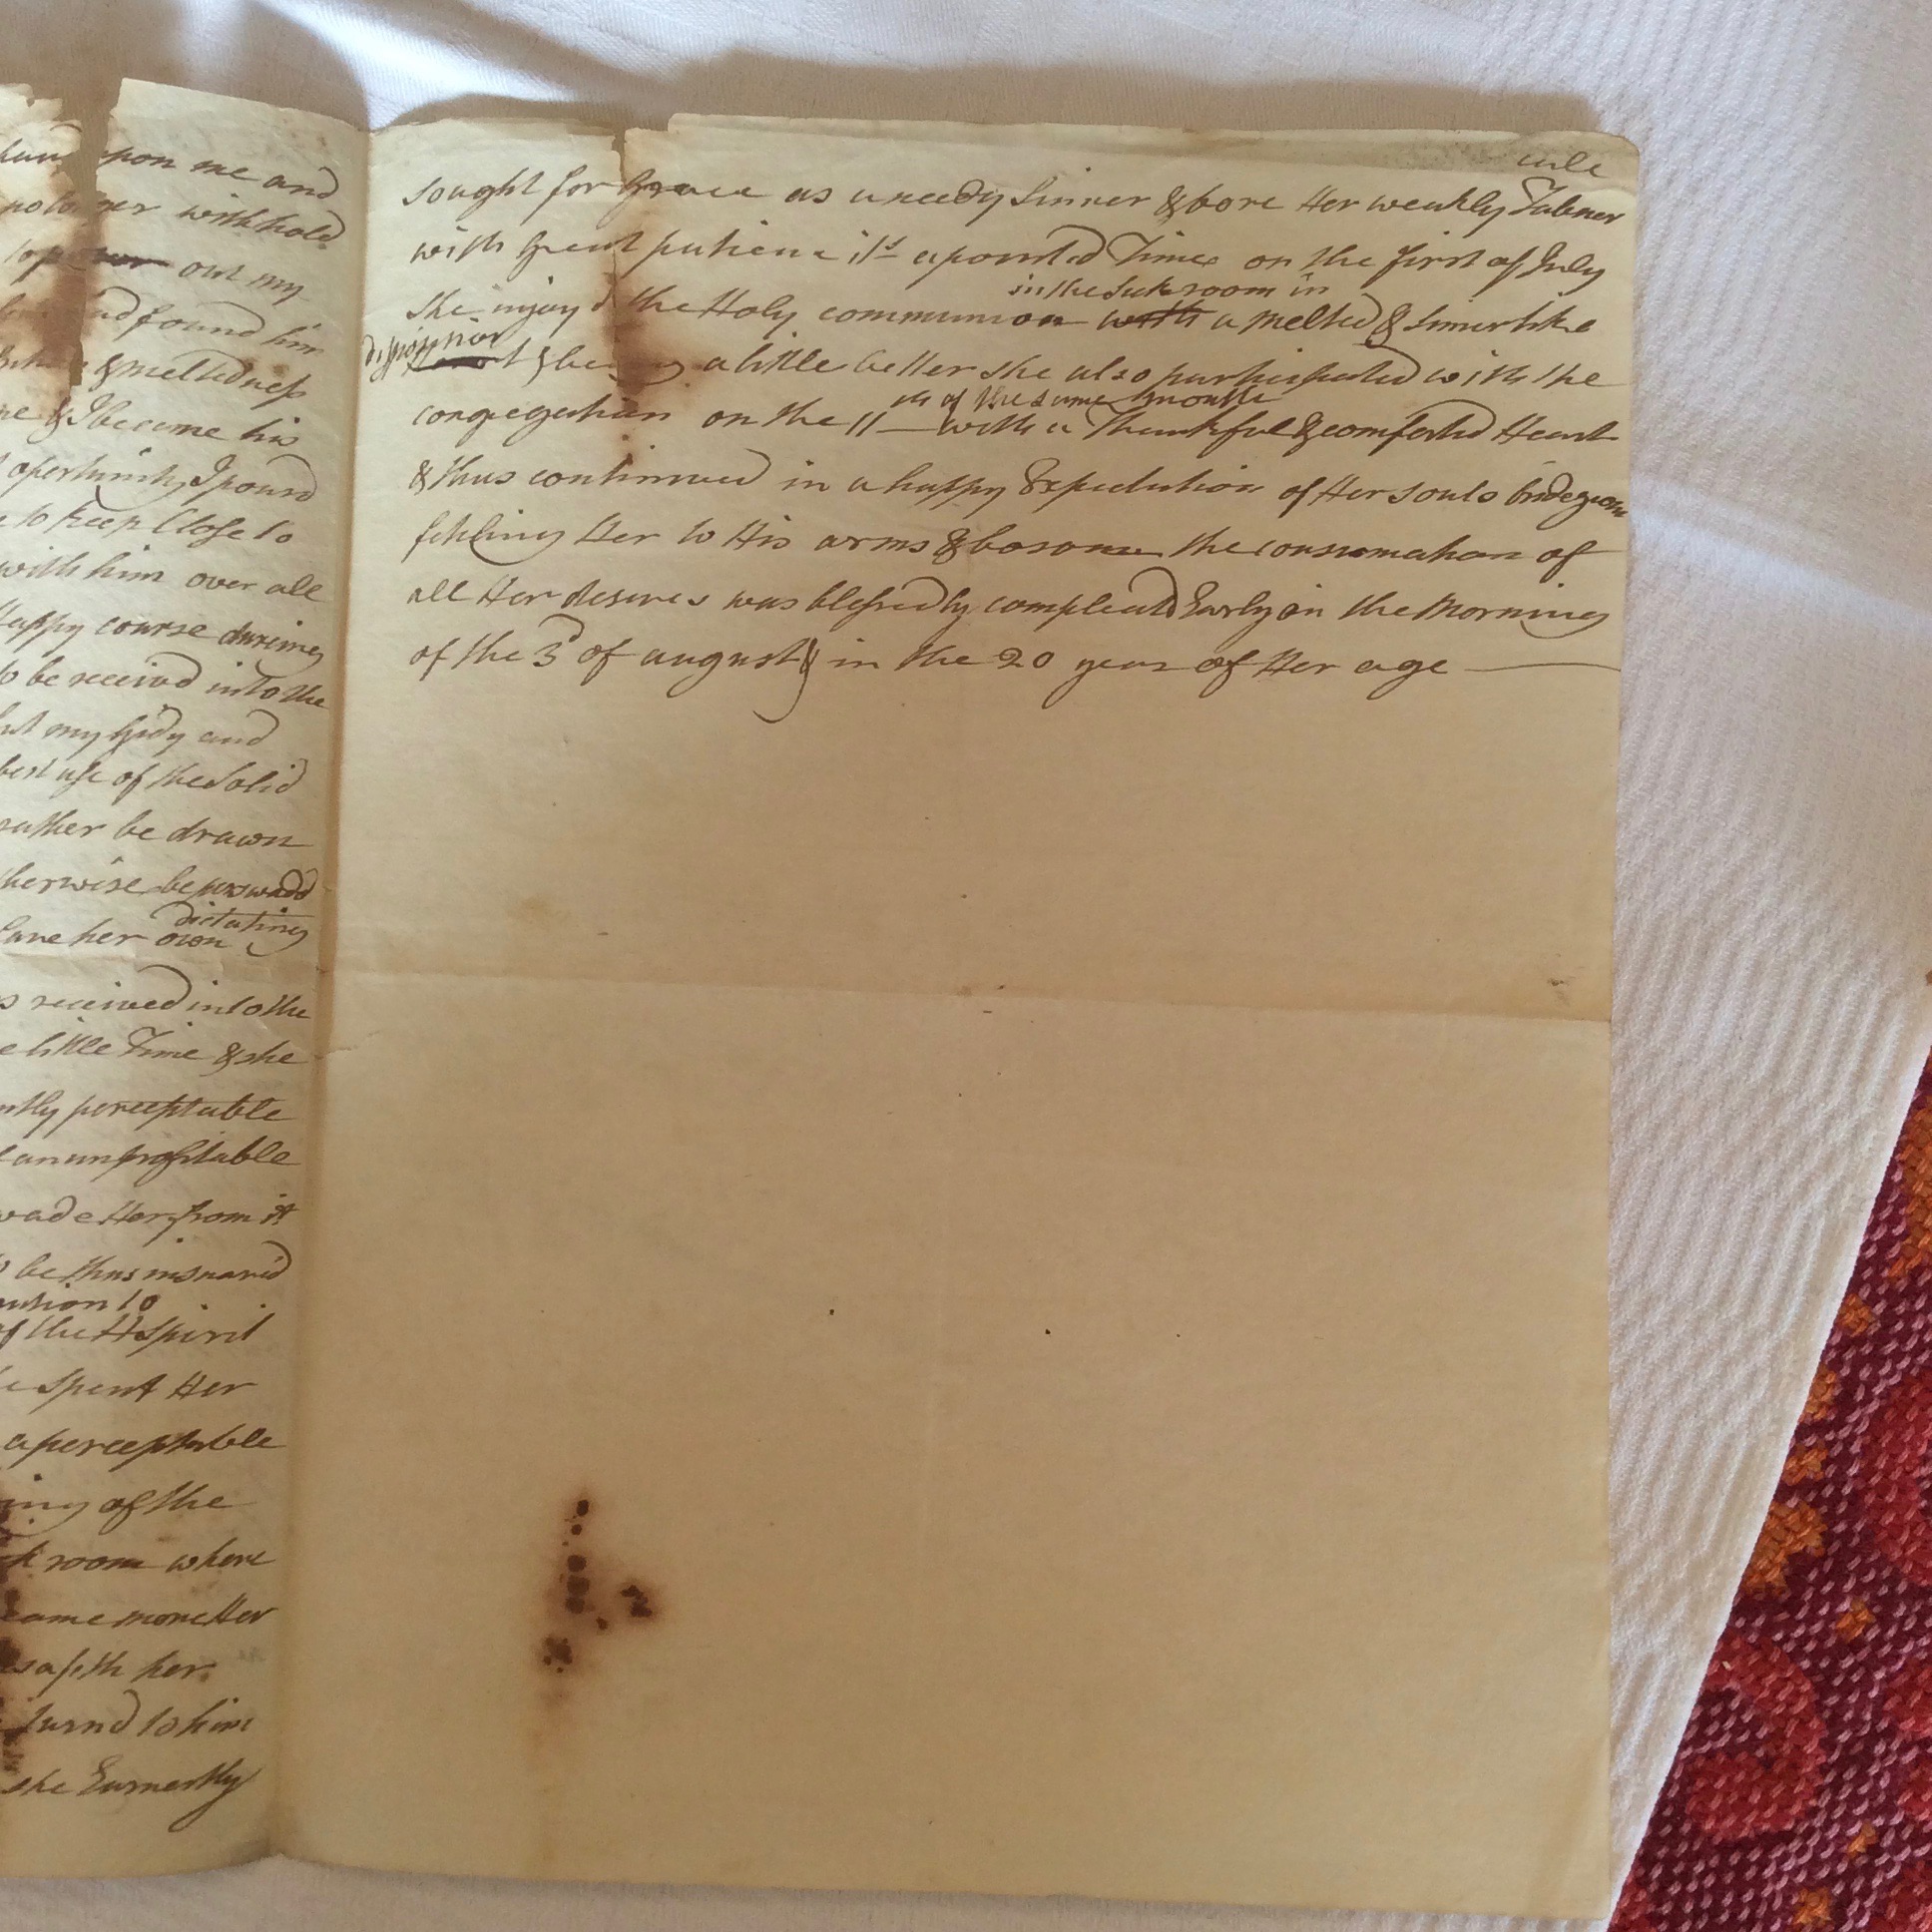 upon me and
withhold
out my
found him
& meltedness
& I became his
opertunity I pourd
to keep Close to
with him over all
happy course dureing
to be receivd into the
my Gidy and
best use of the Solid
rather be drawn
be perswadd
dictating
her own
received into the
little Time & she
perceptable
an unprofitable
Her from it
be thus insnared
to
of the H Spirit
spent Her
a perceptable
of the
room where
came more Her
her
turnd to him
she Earnestly
cule
sought for Grace as a needy Sinner & bore Her weakly Tabner
with Great patience its aponted Time on the first of July
in the Sick room in
she injoyd the Holy communion with a melted & Sinerlike
disposition
& being a little better she also partisipated with the
th of the same month
congregation on the 11 with a Thankful & comforted Heart
& thus continued in a happy Expectation of Her souls bridegroom
fetching Her to His arms & bosome the consumation of
all Her desires was blessedly compleatd Early in the Morning
of the 3d of august & in the 20 year of Her age